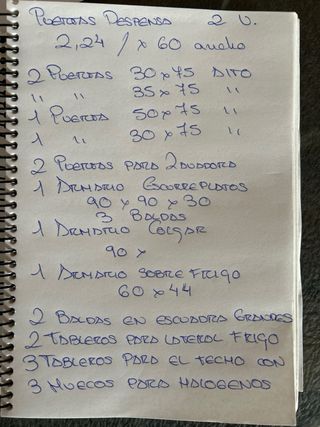 PUERTAS DESPENSA 2 U.
2,24 / x 60 ancho
2 PUERTAS 30 x 75 ALTO
" " 35 x 75 "
1 PUERTA 50 x 75 "
1 " 30 x 75 "
2 PUERTAS PARA LAVADORA
1 ARMARIO ESCORREPLATOS
90 x 90 x 30
3 BALDAS
1 ARMARIO COLGAR
90 x
1 ARMARIO SOBRE FRIGO
60 x 44
2 BALDAS EN ESCUADRA GRANDES
2 TABLEROS PARA LATERAL FRIGO
3 TABLEROS PARA EL TECHO CON
3 HUECOS PARA HALOGENOS